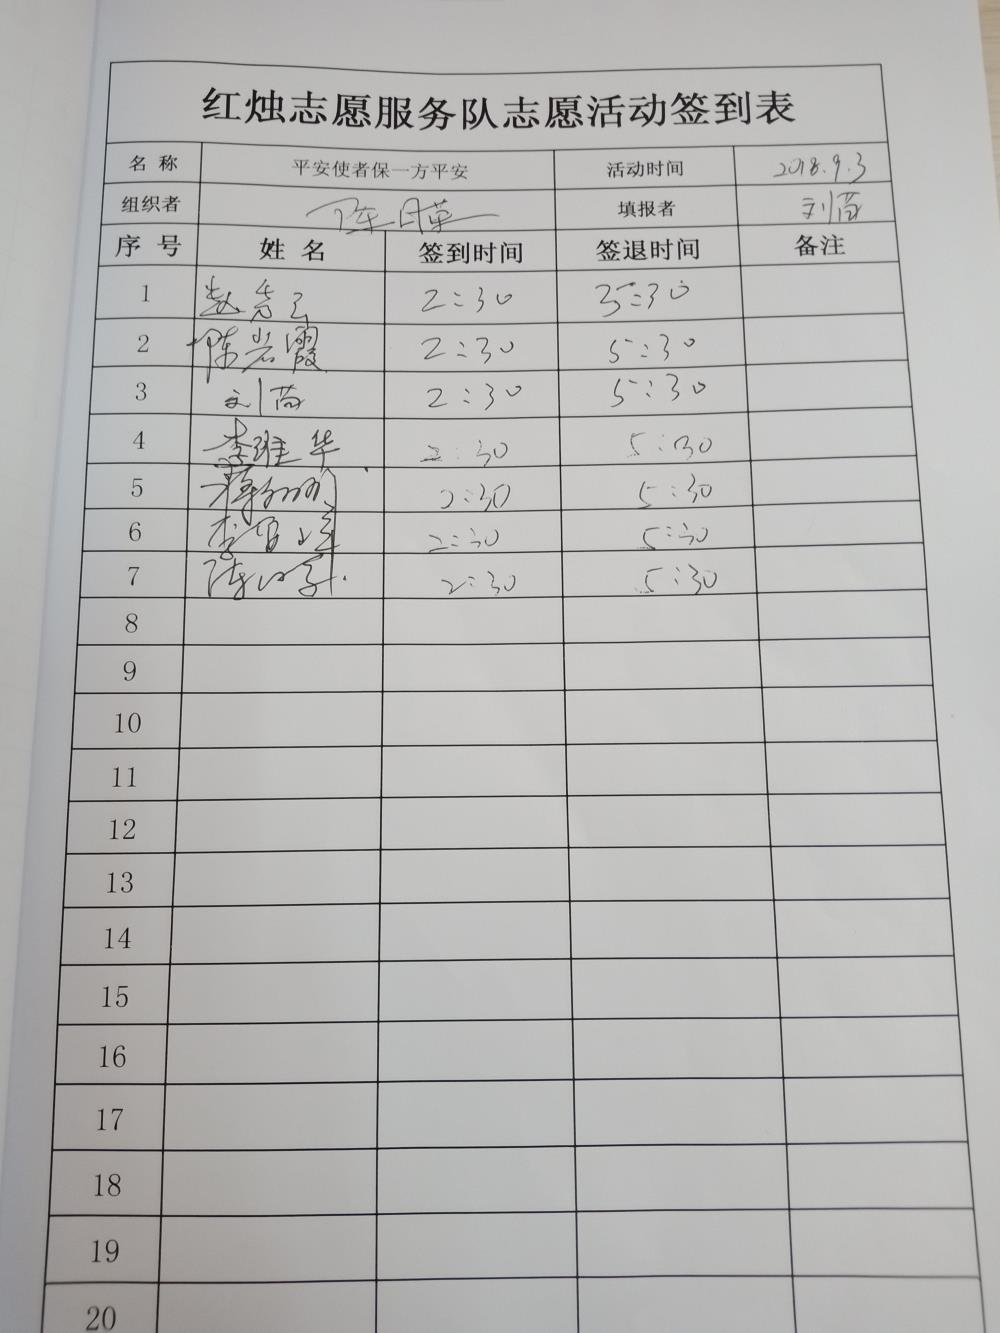 红烛志愿服务队志愿活动签到表
名 称 平安使者保一方平安 活动时间 2018.9.3
组织者 填报者 刘茵
序 号 姓 名 签到时间 签退时间 备注
1 2:30 5:30
2 陈岩霞 2:30 5:30
3 刘茵 2:30 5:30
4 李维华 2:30 5:30
5 2:30 5:30
6 2:30 5:30
7 2:30 5:30
8
9
10
11
12
13
14
15
16
17
18
19
20